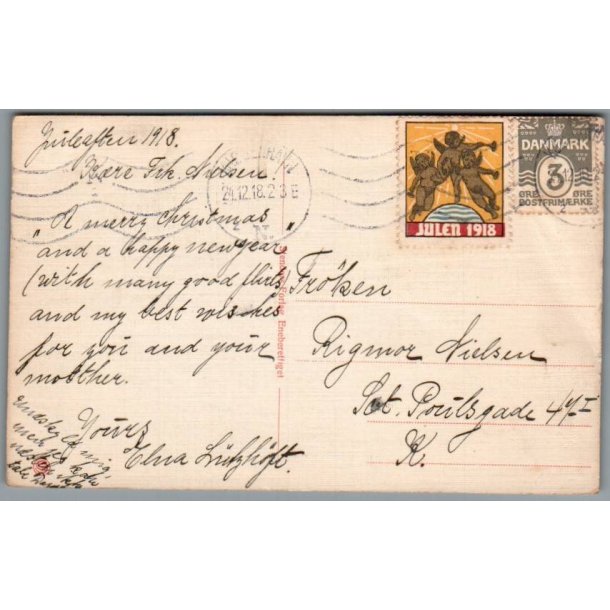 Juleaften 1918.
Kære Frk. Nielsen!
"A merry christmas
and a happy newyear"
(with many good flirts)
and my best wishes
for you and your
motther.
Yours
Elna Lützhøft.
24.12.18. 2 3 E
JULEN 1918
DANMARK
3
ØRE ØRE
POSTFRIMÆRKE
Eneberettiget
Fröken
Rigmor Nielsen
Sct. Poulsgade 47 I
K.